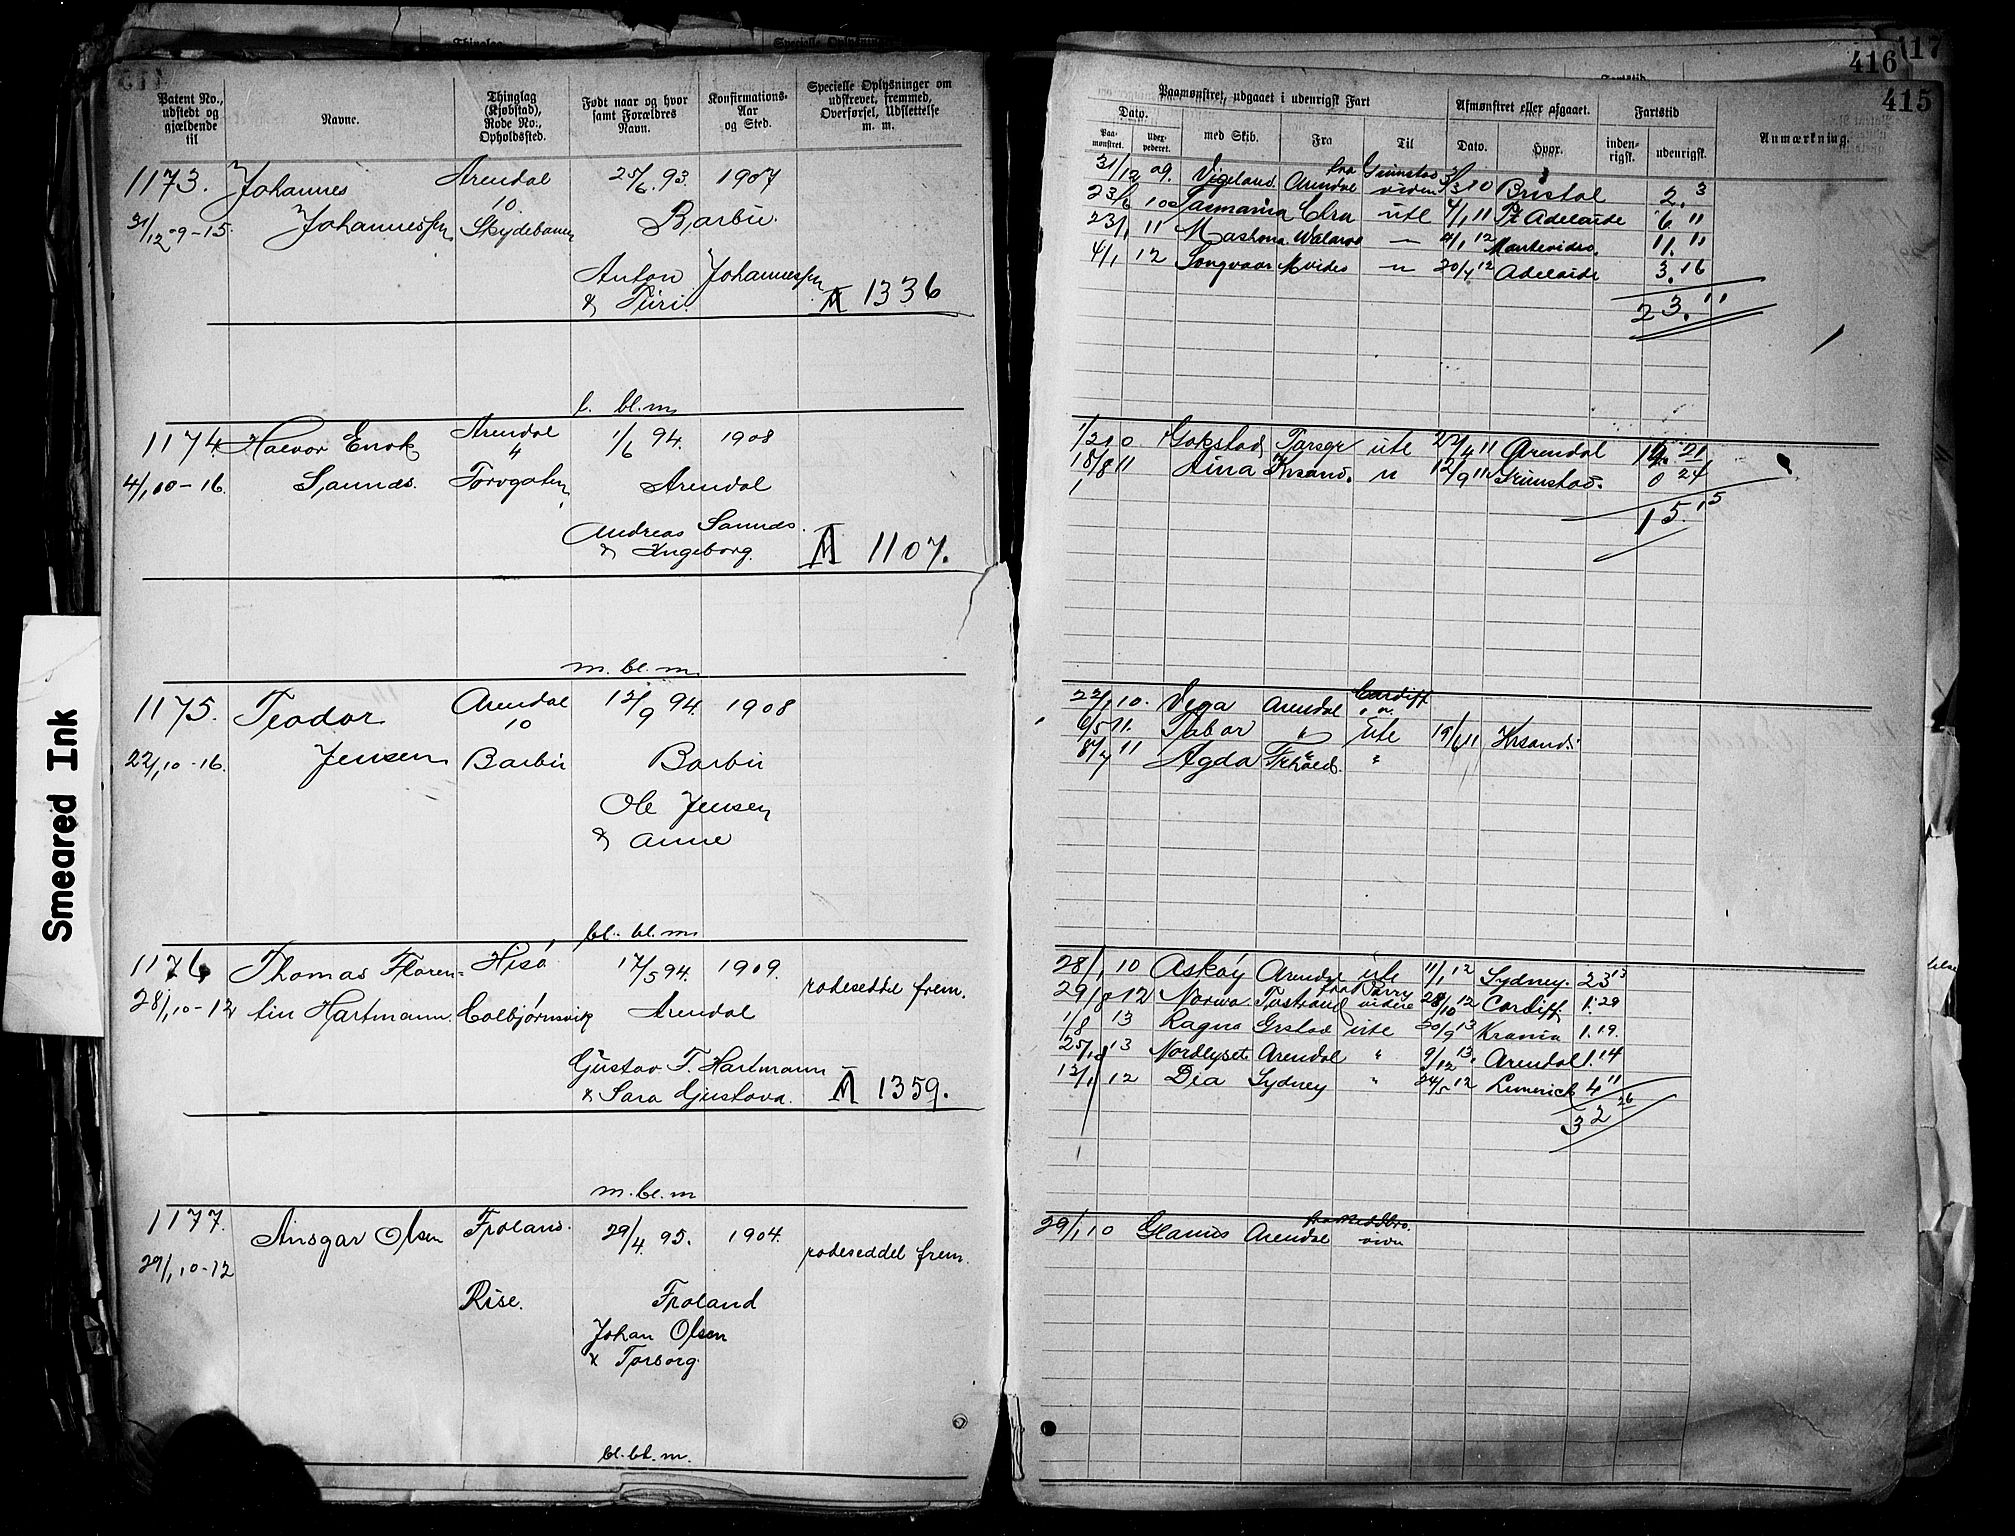 416
415
17
Patent No., udstedt og gjældende til
Navne.
Thinglag (Kjøbstad), Rode No., Opholdssted.
Født naar og hvor samt Forældres Navn.
Konfirmations-Aar og Sted.
Specielle Oplysninger om udskrevet, fremmed, Overførsel, Udslettelse m. m.
Paamønstret, udgaaet i udenrigsk Fart
Afmønstret eller afgaaet.
Fartstid
Anmærkning.
Dato.
med Skib.
Fra
Til
Dato.
Hvor.
inden-rigsk.
udenrigsk.
Paa-mønstret.
Udex-pederet.
1173. Johannes Arendal 25/6. 93. 1907
31/12 09-15. Johannessen 10 Skydebanen Barbu
Anton Johannessen
& Turi. A 1336
l. bl. m
31/12 09. Vigeland Arendal fra Grimstad viden 3/3 10 Bristol 2. 3
23/6 10 Tasmania ute 4/1 11 Pt Adelaide 6 11
23/1 11 Mashona 4/1 12 Montevideo. 11. 11
4/1 12 Songvaar Mvideo " 20/4 12 Adelaide 3. 16
23. 11
1174. Halvor Enok Arendal 1/6 94. 1908
4/1 10-16. Sannds. 4 Torvgaten Arendal
Andreas Sannds.
& Ingeborg. A 1107.
m. bl. m
Gokstad Torsgr ute 22/4 11 Arendal 14. 21
18/8 11 Aina Krsand. " 12/9 11 Grimstad. 0 24
15. 15
1175. Teodor Arendal 12/9 94. 1908
22/1 10-16. Jensen 10 Barbu Barbu
Ole Jensen
& Anne
bl. bl. m
22/1 10. Vega Arendal Cardiff
6/5 11. Tabor " ute 19/6 11 Krsand.
8/7 11 Agda "
1176 Thomas Floren= Hisø 17/5 94. 1909. rodeseddel frem.
28/1 10-12 tin Hartmann. Colbjørnsvik Arendal
Gustav F. Hartmann
& Sara Gustava. A 1359.
m. bl. m
28/1 10 Askøy Arendal ute 11/1 12 Sydney. 23 13
29/8 12 Norma fra Barry videre 28/10 12 Cardiff. 1. 29
1/8 13 Ragna Grstad ute 20/9 13 Krania 1. 19.
25/10 13 Nordlyset Arendal " 9/12 13. Arendal 1. 14
12/1 12 Dia Sydney " 24/5 12 Limerick 4 11
32 26
1177. Ansgar Olsen Froland. 29/4. 95. 1904. rodeseddel frem.
29/1 10-12 Rise. Froland
Johan Olsen
& Torborg.
bl. bl. m.
29/1 10 Glamis Arendal
Smeared Ink